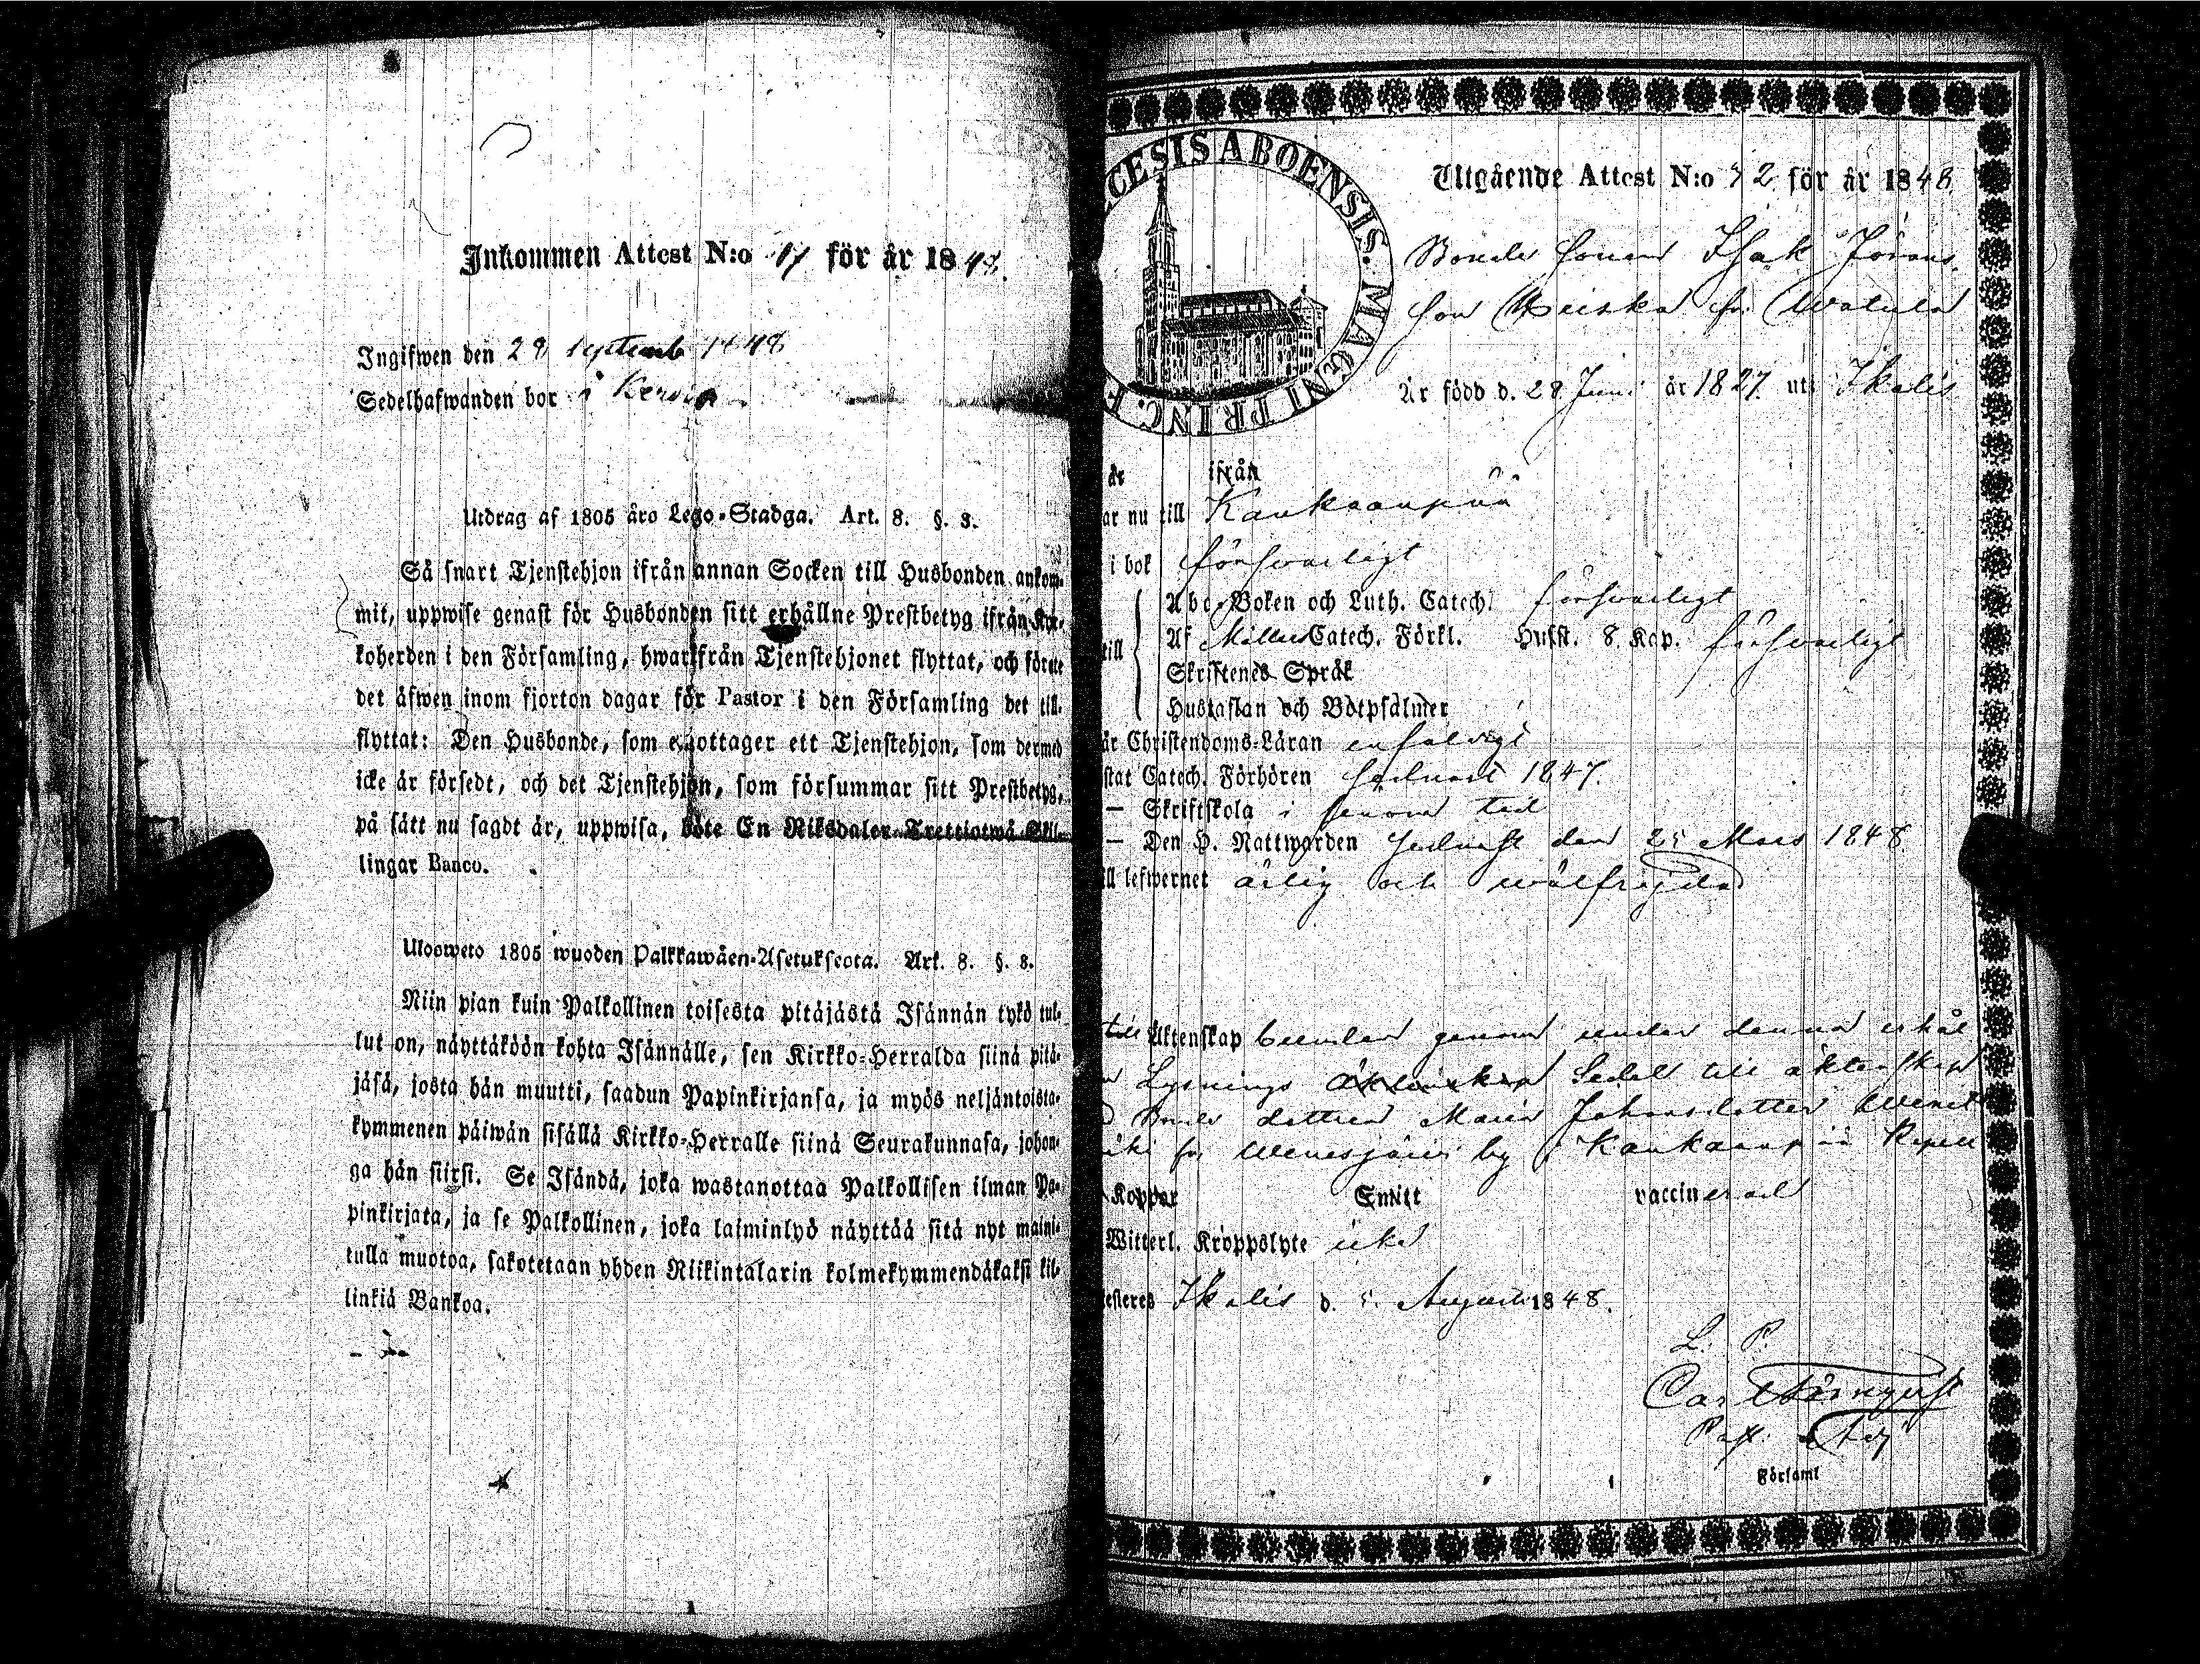 Inkommen Attest N:o 17 för år 1848.
Ingifwen den 28 septemb 1848
Sedelhafwanden bor i
Utdrag af 1805 års Lego-Stadga. Art. 8. §. 3.
Så snart Tjenstehjon ifrån annan Socken till Husbonden ankom-
mit, uppwise genast för Husbonden sitt erhållne Prestbetyg ifrån Kyr-
koherden i den Församling, hwarifrån Tjenstehjonet flyttat, och förete
det äfwen inom fjorton dagar för Pastor i den Församling det till-
flyttat: Den Husbonde, som emottager ett Tjenstehjon, som dermed
icke är försedt, och det Tjenstehjon, som försummar sitt Prestbetyg,
på sätt nu sagdt är, uppwisa, böte En Riksdaler Trettiotwå Skil-
lingar Banco.
Ulosweto 1805 wuoden Palkkawäen-Asetuksesta. Art. 8. §. 3.
Niin pian kuin Palkollinen toisesta pitäjästä Isännän tykö tul-
lut on, näyttäköön kohta Isännälle, sen Kirkko-Herralda siinä pitä-
jäsä, josta hän muutti, saadun Papinkirjansa, ja myös neljäntoista-
kymmenen päiwän sisällä Kirkko-Herralle siinä Seurakunnasa, johon-
ga hän siirsi. Se Isändä, joka wastanottaa Palkollisen ilman Pa-
pinkirjata, ja se Palkollinen, joka laiminlyö näyttää sitä nyt maini-
tulla muotoa, sakotetaan yhden Riikintalarin kolmekymmendäkaksi kil-
linkiä Bankoa.
CESIS ABOENSIS. MAGNI PRINC. F
Utgående Attest N:o 32 för år 1848
Bonde sonen Isak Jörans
son Heiska fr.
Är född d. 28 Juni år 1827 uti Ikalis
är ifrån
ar nu till Kankaanpää
i bok försvarligt
Abc-Boken och Luth. Catech. försvarligt
till Af Möllers Catech. Förkl. Hufst. 8. Kap. försvarligt
Skriftenes Språk
Hustaflan och Botpsalmer
är Christendoms-Läran enfaldigt
stat Catech. Förhören sednast 1847.
— Skriftskola i sinom tid
— Den H. Nattwarden sednast den 25 Mars 1848
ll lefwernet ärlig och wälfrejdad
till Äktenskap genom denna erhål
Lysnings äktenskap Sedel till äktenskap
Bonde dottren Maria Johansdotter
fr. Wenesjärvi by i Kankaanpää Kapell
Koppor Smitt vaccinerad
Witterl. Kroppslyte icke
esteres Ikalis d. 5. Augusti 1848.
L. P.
Carl
Past. Adj
Församl